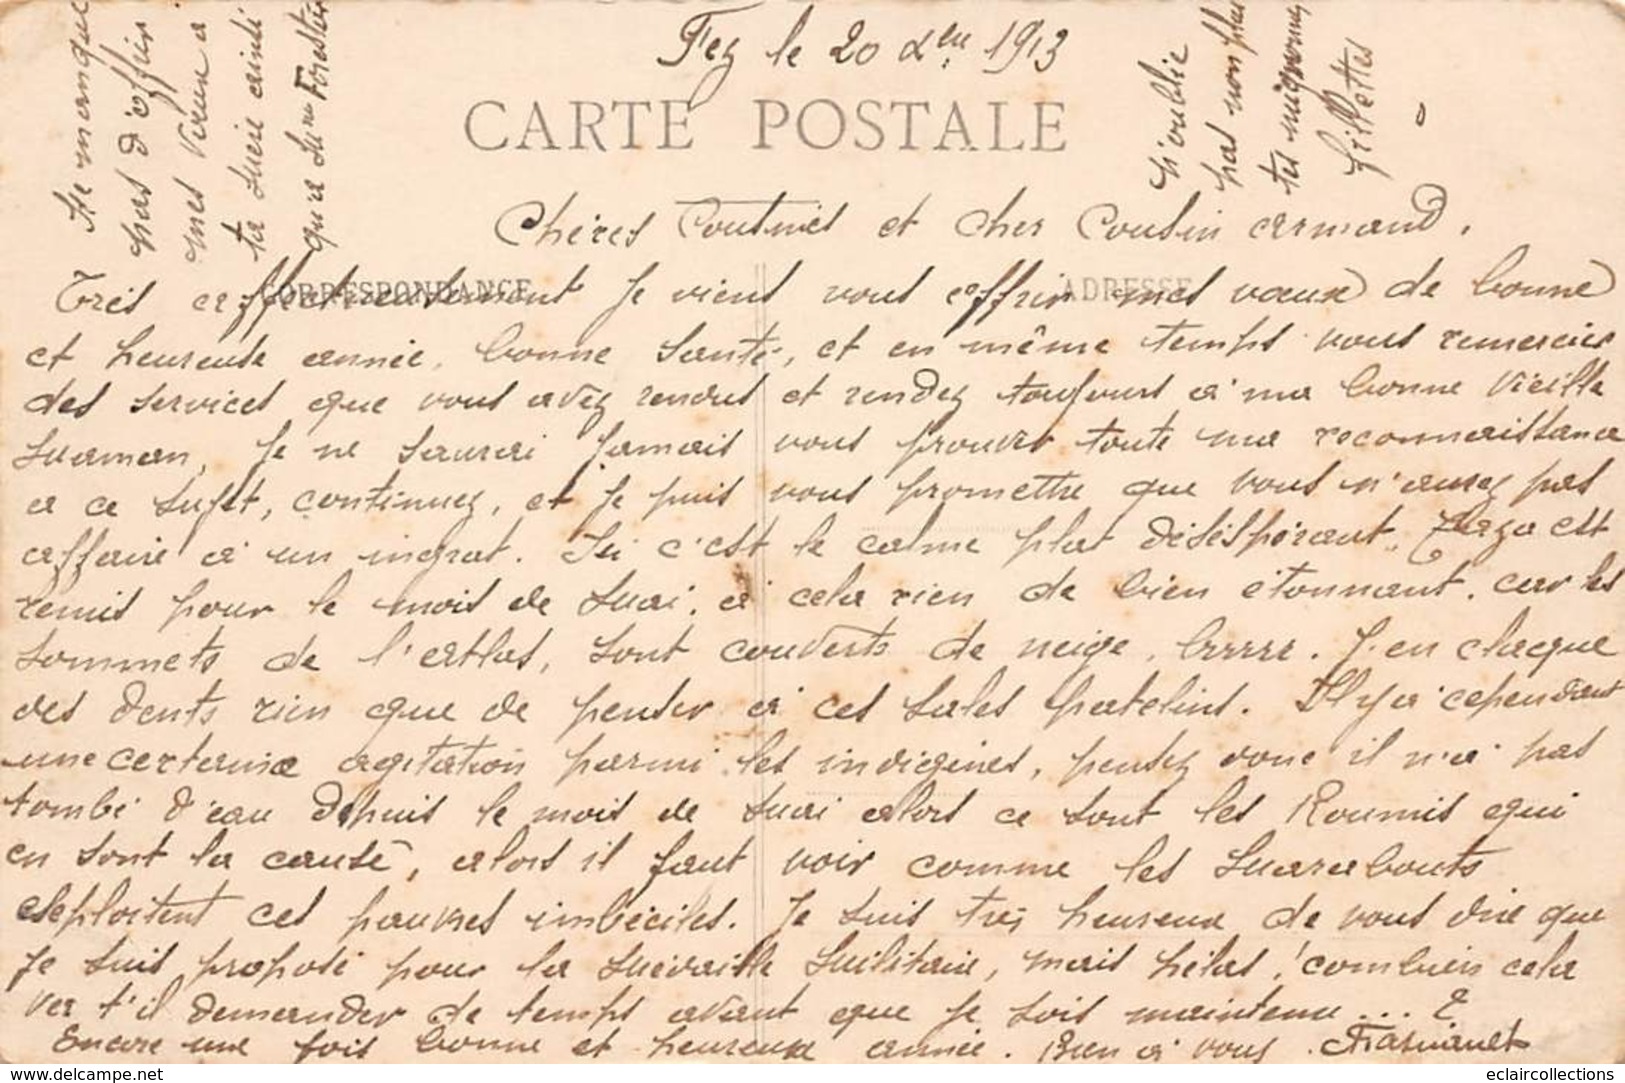 Fez le 20 Xbre 1913
CARTE POSTALE
Ne manque
pas d'offrir
mes vœux à
ta mère ainsi
qu'à Mme Forestier
N'oublie
pas non plus
tes mignonnes
fillettes
Chères Cousines et Cher Cousin Armand,
CORRESPONDANCE
ADRESSE
Très affectueusement je viens vous offrir mes vœux de bonne
et heureuse année, bonne santé, et en même temps vous remercier
des services que vous avez rendus et rendez toujours à ma bonne vieille
Maman, je ne saurai jamais vous prouver toute ma reconnaissance
à ce sujet, continuez, et je puis vous promettre que vous n'aurez pas
affaire à un ingrat. Ici c'est le calme plat désespérant. Taza est
remis pour le mois de Mai, à cela rien de bien étonnant, car les
sommets de l'atlas, sont couverts de neige, brrrr. J'en claque
des dents rien que de penser à ces sales patelins. Il y a cependant
une certaine agitation parmi les indigènes, pensez donc il n'a pas
tombé d'eau depuis le mois de Mai alors ce sont les Roumis qui
en sont la cause, alors il faut voir comme les Marabouts
exploitent ces pauvres imbéciles. Je suis très heureux de vous dire que
je suis proposé pour la Médaille Militaire, mais hélas ! combien cela
va t'il demander de temps avant que je sois maintenu ... ?
Encore une fois bonne et heureuse année. Bien à vous.
eclaircollections